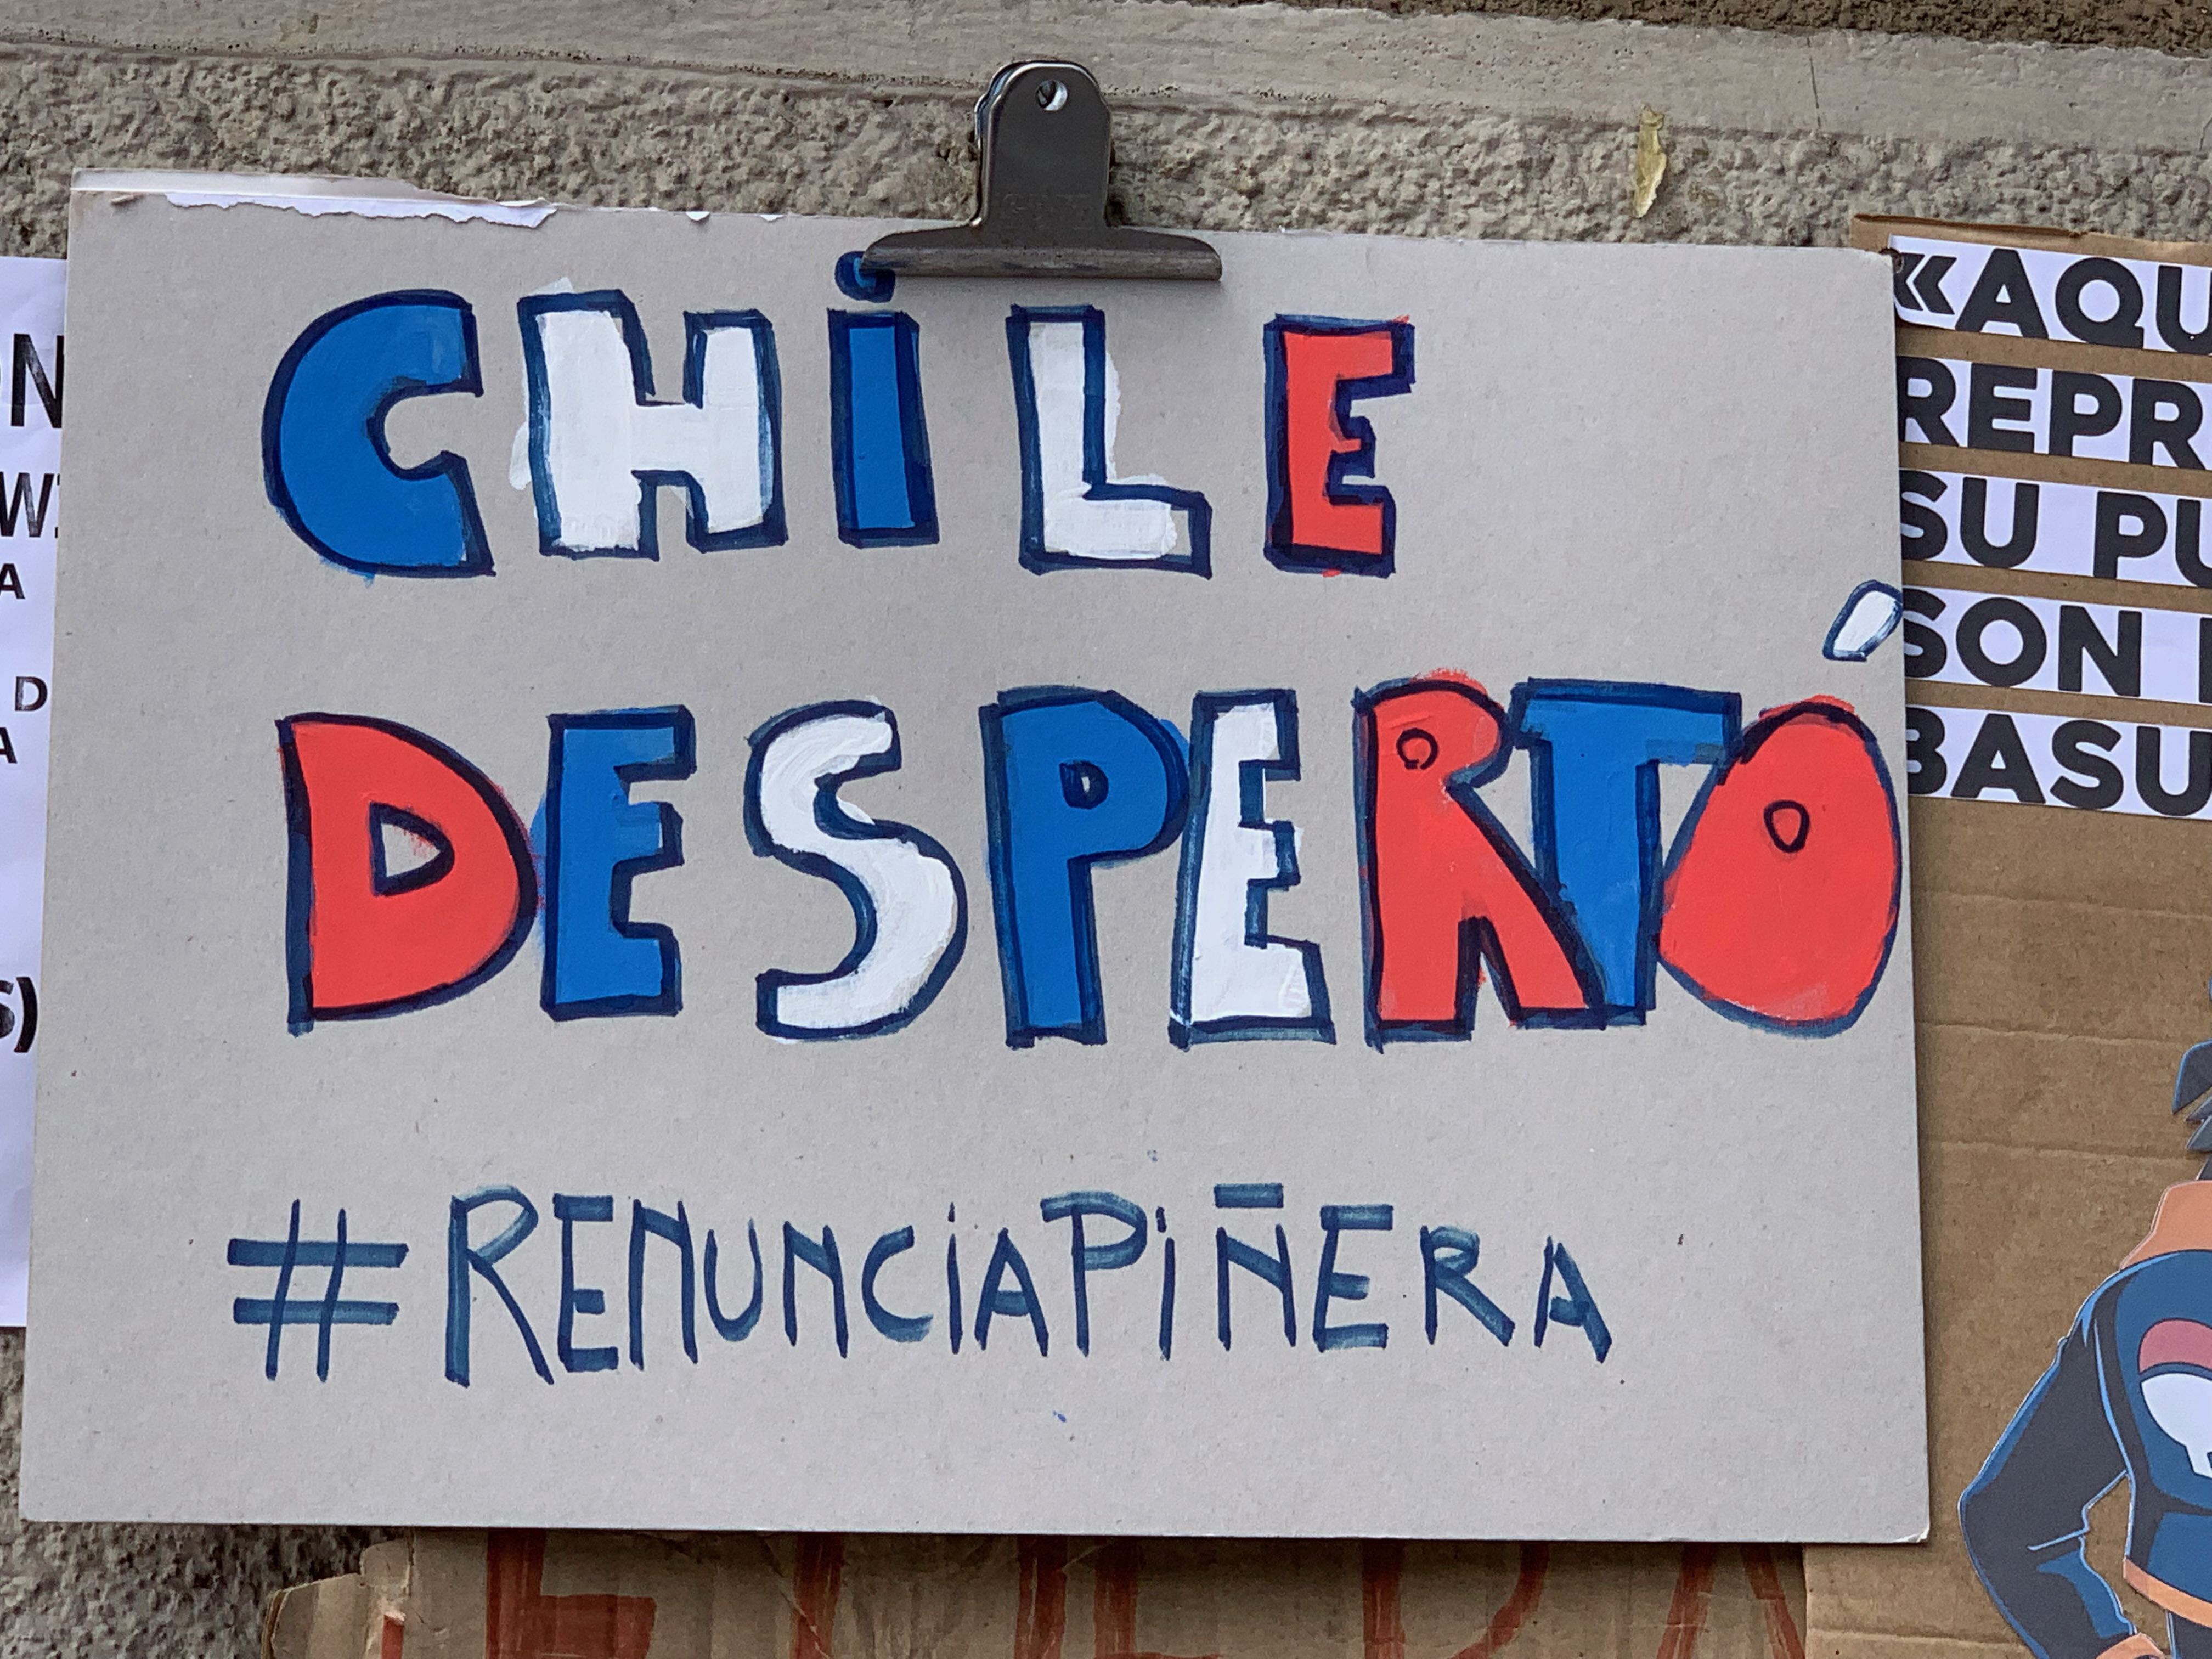 CHiLE
DESPERTÓ
#RENUNCiAPiÑERA
«AQU
REPR
SU PU
SON
BASU